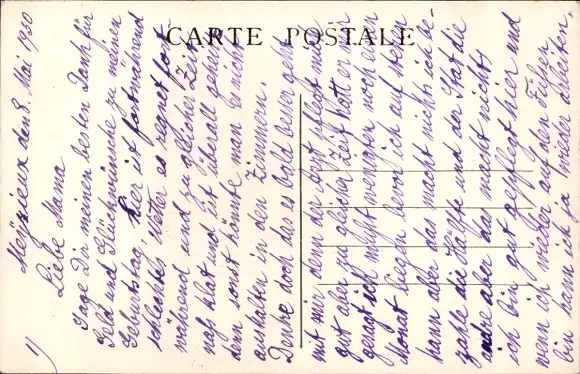 CARTE POSTALE
1)
Meyzieux den 8. Mai 1930
Liebe Mama
Sage Dir meinen besten Dank für
Geld und Glückwünsche zu meinen
Geburtstag, hier ist fortwährend
schlechtes Wetter es regnet fort-
während und zu gleicher Zeit
naß kalt und ist überall geheizt
denn sonst könnte man es nicht
aushalten in den Zimmern.
Denke doch das es bald besser geht
mit mir denn der Arzt pflegt mich
gut aber zu gleicher Zeit hatt er mir
gesagt ich müßt wenigsten noch ein
Monat liegen bevor ich auf stehen
kann aber das macht nichts ich be-
zahle die Hälfte und der Stat die
andre aber das macht nichts
ich bin gut gepflegt hier und
wenn ich wieder auf den Füßen
bin kann ich ja wieder arbeiten.